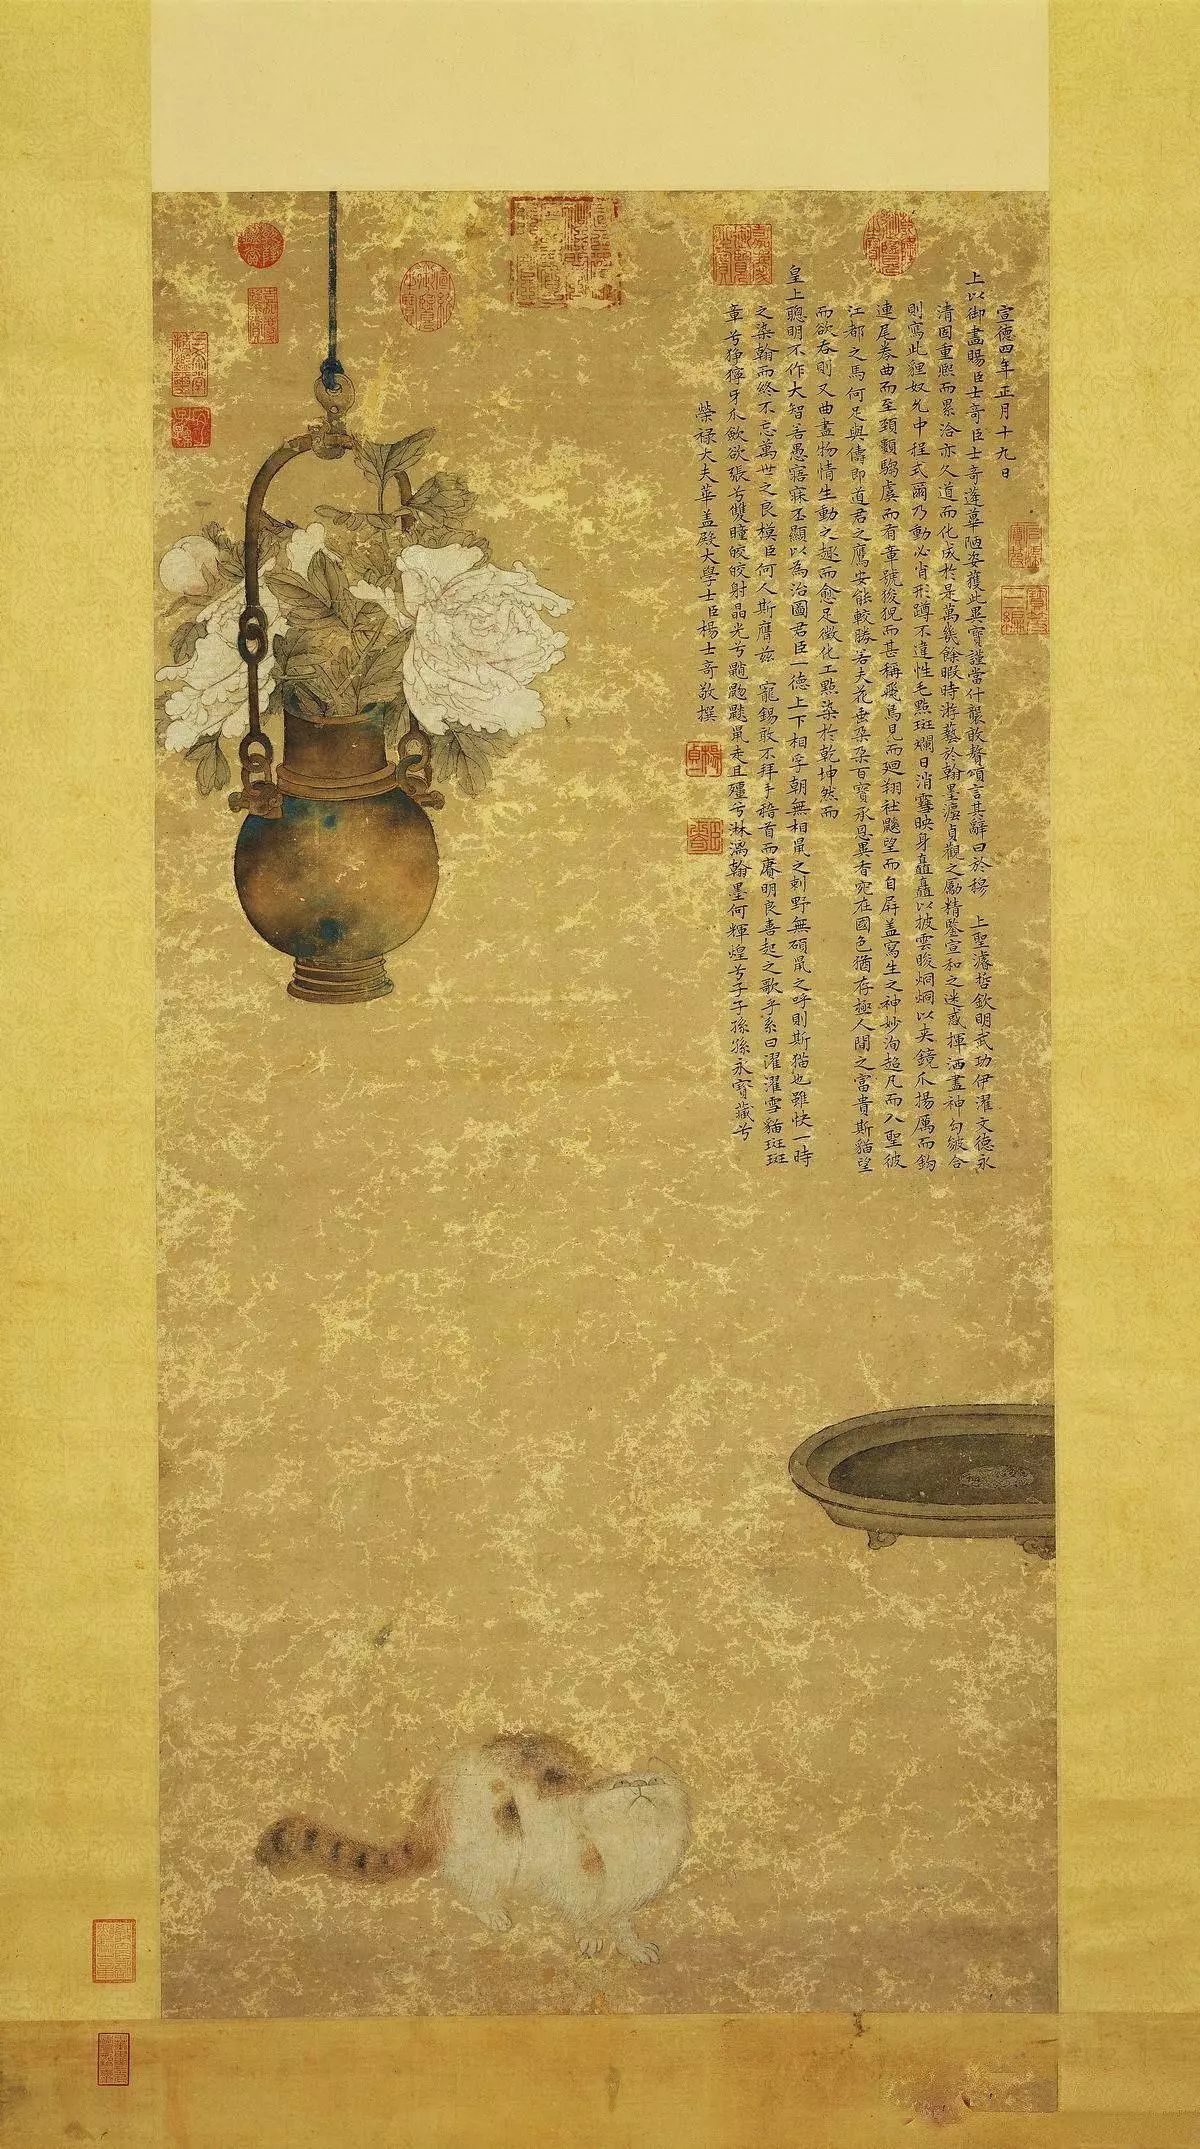 宣德四年正月十九日
上以御畫賜臣士奇臣士奇蓬蓽陋姿獲此異寶謹當什襲敬贅頌言其辭曰於穆　上聖濬哲欽明武功伊濯文德永
清固重熙而累洽亦久道而化成於是萬幾餘暇時游藝於翰墨灜貞觀之勵精鑒宣和之迷惑揮洒盡神勾皴合
則寫此貍奴允中程式爾乃動必肖形蹲不違性毛點斑斕日消雪映身矗矗以披雲睃烱烱以夾鏡爪揚厲而鈎
連尾拳曲而至頸顴騶虞而有章號狻猊而甚稱飛鳥見而廻翔社鼷望而自屏盖寫生之神妙洵超凡而入聖彼
江都之馬何足與儔即道君之鷹安能較勝若夫花垂朶朶百寶承恩異香宛在國色猶存極人間之富貴斯貓望
而欲吞則又曲盡物情生動之趣而愈足徵化工點染於乾坤然而
皇上聰明不作大智若愚寤寐丕顯以為治圖君臣一德上下相孚朝無相鼠之刺野無碩鼠之呼則斯猫也雖快一時
之染翰而終不忘萬世之良模臣何人斯膺茲　寵錫敢不拜手稽首而賡明良喜起之歌乎系曰濯濯雪貓斑斑
章兮猙獰牙爪歛欲張兮雙瞳皎皎射晶光兮鼠走且殭兮淋漓翰墨何輝煌兮子子孫孫永寶藏兮
榮禄大夫華盖殿大學士臣楊士奇敬撰